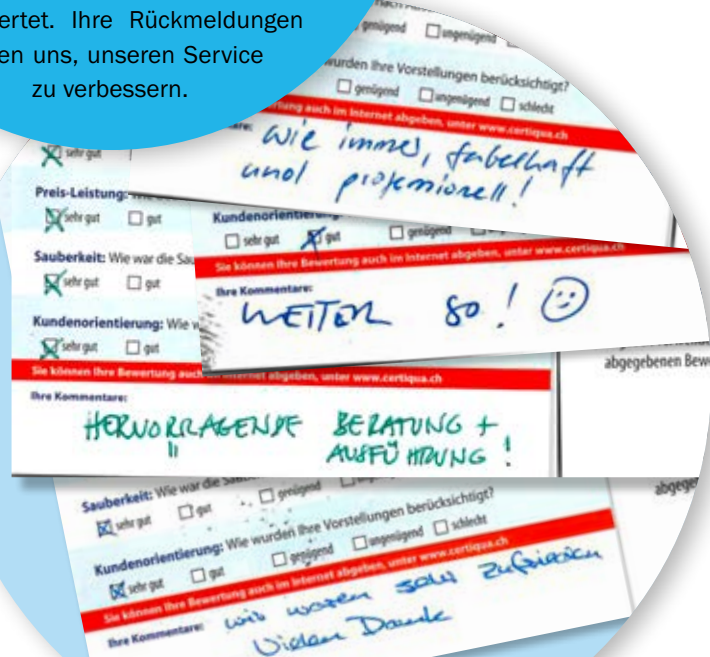 ertet. Ihre Rückmeldungen
en uns, unseren Service
zu verbessern.
genügend ungenügend
wurden Ihre Vorstellungen berücksichtigt?
genügend ungenügend schlecht
tung auch im Internet abgeben, unter www.certiqua.ch
wie immer, fabelhaft
und professionell!
sehr gut
Preis-Leistung:
sehr gut gut
Sauberkeit: Wie war die Sau
sehr gut gut
Kundenorientierung: Wie w
sehr gut gut
Kundenorientierung
sehr gut gut genügend
Sie können Ihre Bewertung auch im Internet abgeben, unter www.certiqua.ch
Ihre Kommentare:
WEITER SO!
Sie können Ihre Bewertung auch im Internet abgeben, unter www.certiqua.ch
Ihre Kommentare:
HERVORRAGENDE BERATUNG +
AUSFÜHRUNG!
abgegebenen Bew
abgege
Sauberkeit: Wie war die Sau
sehr gut gut genügend
Kundenorientierung: Wie wurden Ihre Vorstellungen berücksichtigt?
sehr gut gut genügend ungenügend schlecht
Sie können Ihre Bewertung auch im Internet abgeben, unter www.certiqua.ch
Ihre Kommentare:
wir waren sehr zufrieden
Vielen Dank